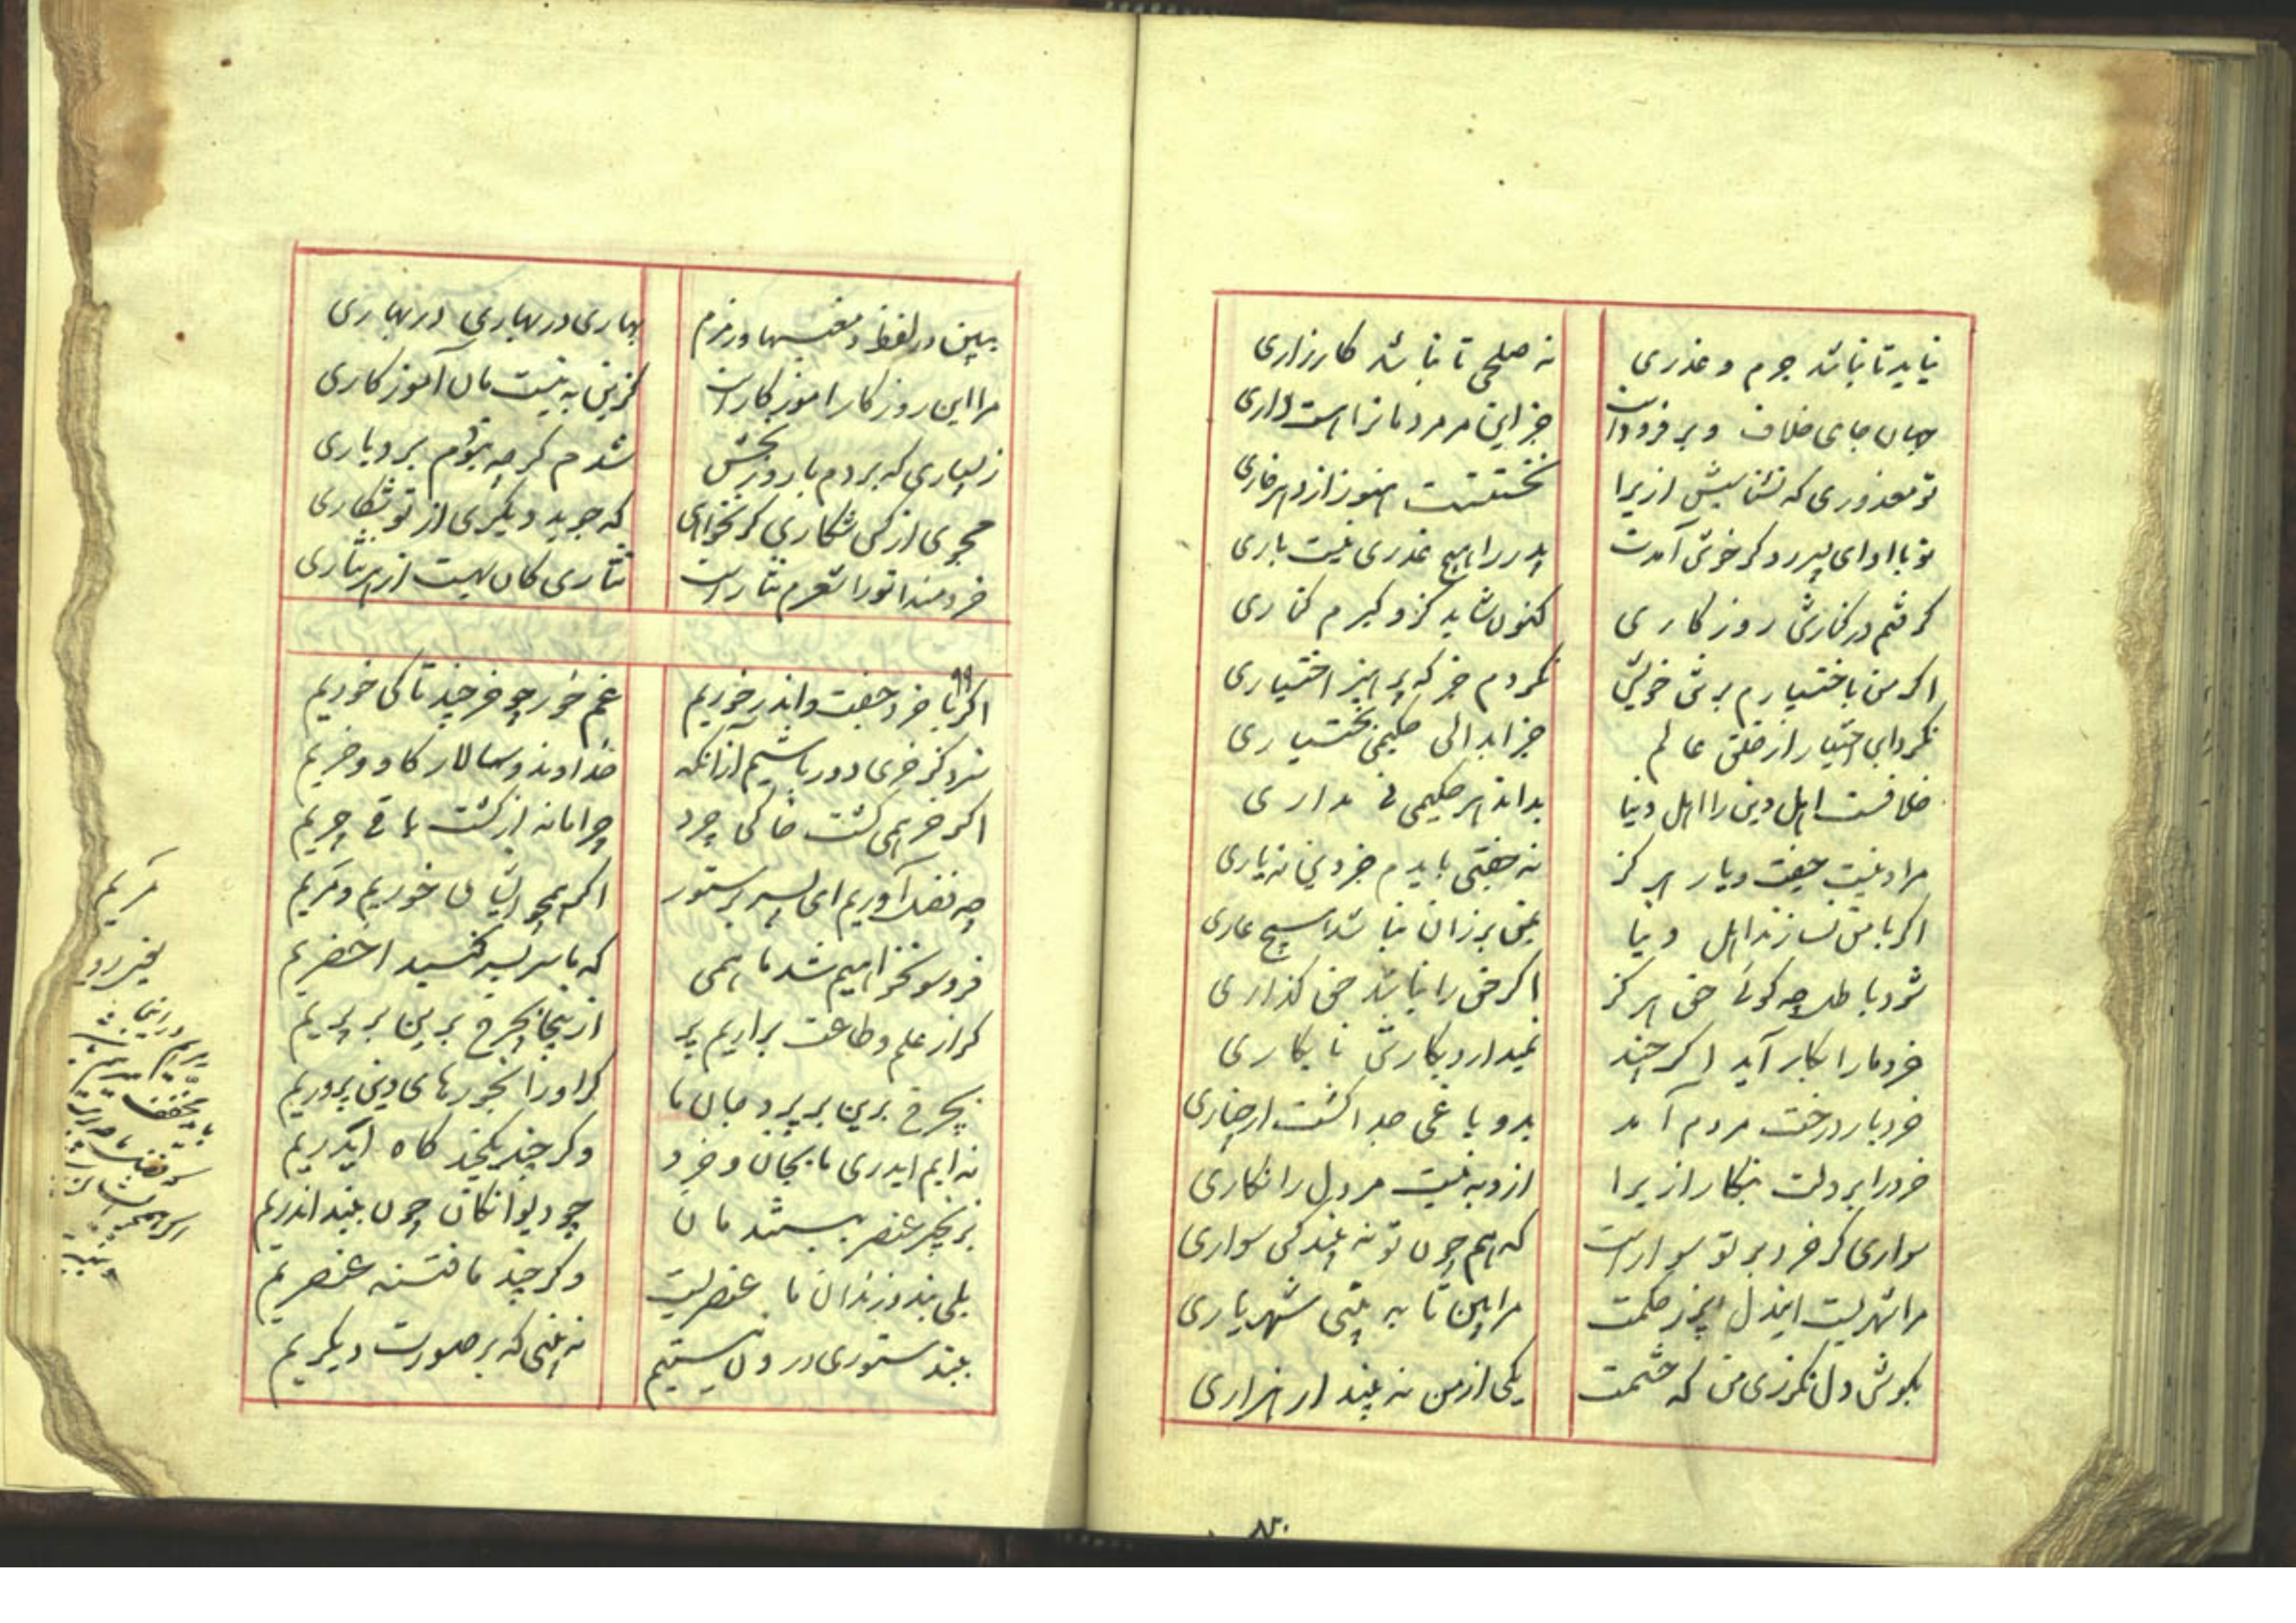 نیاید تا نباشد جرم و عذری
نه صلحی تا نباشد کارزاری
جهان جای خلاف و بر فرودست
جز این مر مردمانرا است داری
تو معذوری که نشناسیش ازیرا
نخستینت هنوز از دهر خاری
تو با او ای پسر رو گر خوش آمدت
پدر را هیچ عذری نیست باری
گرفتم در کنارش روزکاری
کنون شاید کزو گیرم کناری
اگر من با اختیارم برش خویش
نکردم جز که پرهیز اختیاری
نکرد این اختیار از خلق عالم
جز ابدالی حکیمی بختیاری
خلافست اهل دین را اهل دنیا
بداند هر حکیمی بی مداری
مرا دنییت جفت و یار هرگز
نه جفتی بایدم جز دین نه یاری
اگر با من نسازند اهل دنیا
بمن بر زان نباشد هیچ عاری
شود باطل چه گوئی حق هرگز
اگر حق را نباشد حق گذاری
خرد ما را بکار آید اگر چند
نمیدارد بکارش نابکاری
خرد بار درخت مردم آمد
بدو باغی جدا گشت از خیاری
خرد را بر دلت بنگار ازیرا
ازو به نیست مر دل را نگاری
سواری گر خرد بر تو سوارست
که هم چون تو نه بیند کس سواری
مرا شهریست ایندل پر ز حکمت
مرا بین تا به بینی شهریاری
بگوش دل نگر زی من که چشمت
یکی از من نه بیند از هزاری
ببین در لفظ و معنیها و رمزم
بهاری در بهاری در بهاری
مرا این روزکار آموز کارست
کزین به نیست مان آموزکاری
ز بسیاری که بردم بار و رنجش
شدم گرچه نبودم بردباری
مجوی از کس شکاری گر نخواهی
که جوید دیگری از تو شکاری
خردمندا تو را شعرم نثارست
نثاری کان بهست از هر نثاری
۹۹
اگر با خرد جفت و اندر خوریم
غم خور چو خر چند تا کی خوریم
سزد کز خری دور باشیم ازانکه
خداوند و سالار گاو و خریم
اگر خر همی کشت خاکی چرد
چرا ما نه از کشت باقی چریم
چه فضل آوریم ای پسر بر ستور
اگر همچو ایشان خوریم و مریم
فرو سو نخواهیم شد ما همی
که ما سر بسر گنبد اخضریم
گر از علم و طاعت براریم پر
ازینجا بچرخ برین بر پریم
بچرخ برین بر پرد جان ما
گر او را بخورهای دین پروریم
نه ایم ایدری ما بجان و خرد
وگر چند یکچند گاه ایدریم
بزنجیر عنصر ببستند مان
چو دیوانگان چون ببند اندریم
بلی بند و زندان ما عنصریست
وگر چند ما فتنه عنصریم
ببند ستوری درون بستیم
نه بینی که بر صورت دیگریم
مریم